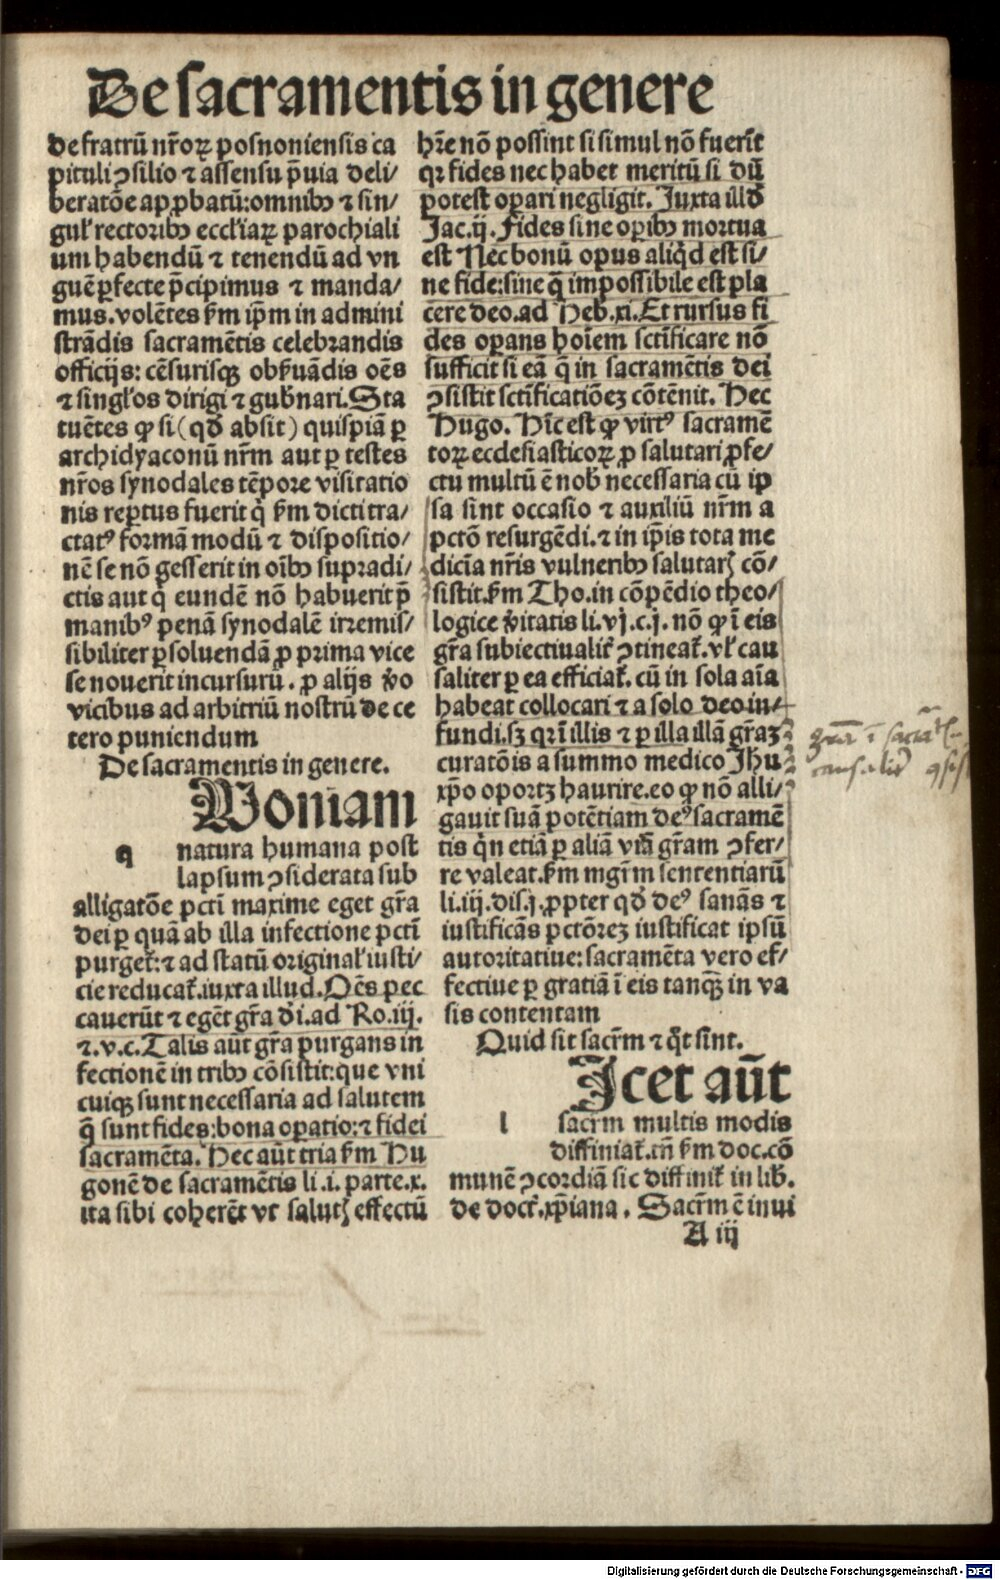 De sacramentis in genere
de fratrū nr̄oꝝ posnoniensis ca
pituli ꝯsilio ⁊ assensu p̄uia deli/
beratōe apꝓbatū:omnibꝰ ⁊ sin/
gul' rectoribꝰ eccl'iaꝝ parochiali
um habendū ⁊ tenendū ad vn
guē ꝑfecte p̄cipimus ⁊ manda/
mus.volētes ẜm ip̄m in admini
strādis sacramētis celebrandis
officijs: cēsurisqꝫ obẜuādis oēs
⁊ singl'os dirigi ⁊ gub'nari.Sta
tuētes ꝙ si (qđ absit) quispiā ꝑ
archidyaconū nr̄m aut ꝑ testes
nr̄os synodales tēpore visitatio
nis reꝑtus fuerit q̇ ẜm dicti tra/
ctatꝰ formā modū ⁊ dispositio/
nē se nō gesserit in oībꝰ supradi/
ctis aut q̇ eundē nō habuerit p̄
manibꝰ penā synodalē irremis/
sibiliter ꝑsoluendā ꝓ prima vice
se nouerit incursurū. ꝓ alijs v̓o
vicibus ad arbitriū nostrū de ce
tero puniendum
De sacramentis in genere.
q
Uoniam
natura humana post
lapsum ꝯsiderata sub
alligatōe pctī maxime eget gr̄a
dei ꝑ quā ab illa infectione pctī
purget᷑:⁊ ad statū original' iusti/
cie reducat᷑.iuxta illud.Oēs pec
cauerūt ⁊ egēt gr̄a d̓i.ad Ro.iij.
⁊.v.c.Talis aūt gr̄a purgans in
fectionē in tribꝰ cōsistit:que vni
cuiqꝫ sunt necessaria ad salutem
q̄ sunt fides:bona oꝑatio:⁊ fidei
sacramēta. Hec aūt tria ẜm Hu
gonē de sacramētis li.i. parte.x.
ita sibi coherēt vt salutꝭ effectū
hr̄e nō possint si simul nō fuerīt
qꝛ fides nec habet meritū si dū
potest oꝑari negligit. Iuxta illđ
Jac.ij. Fides sine oꝑibꝰ mortua
est Nec bonū opus aliq̇d est si/
ne fide:sine q̄ impossibile est pla
cere deo.ad Heb.xi.Et rursus fi
des oꝑans hoīem sctīficare nō
sufficit si eā q̄ in sacramētis dei
ꝯsistit sctīficatiōeꝫ cōtēnit. Hec
Hugo. Hīc est ꝙ virtꝰ sacramē
toꝝ ecclesiasticoꝝ ꝓ salutari ꝓfe/
ctu multū ē nob̓ necessaria cū ip
sa sint occasio ⁊ auxiliū nr̄m a
pctō resurgēdi.⁊ in ip̄is tota me
dicīa nr̄is vulneribꝰ salutarꝭ cō/
sistit.ẜm Tho.in cōpēdio theo/
logice v̓itatis li.vj.c.j. nō ꝙ ī eis
gr̄a subiectiualit᷑ ꝯtineat᷑.vl' cau
saliter ꝑ ea efficiat᷑. cū in sola aīa
habeat collocari ⁊ a solo deo in/
fundi.sꝫ qꝛ ī illis ⁊ ꝑ illa illā gr̄aꝫ
curatōis a summo medico Jhu
xp̄o oportꝫ haurire.eo ꝙ nō alli/
gauit suā potētiam deꝰ sacramē
tis q̇n etiā ꝑ aliā viā gr̄am ꝯfer/
re valeat.ẜm mgr̄m sententiarū
li.iij.dis.j.ꝓpter qđ deꝰ sanās ⁊
iustificās pctōreꝫ iustificat ipsū
autoritatiue:sacramēta vero ef/
fectiue ꝑ gratiā ī eis tanqꝫ in va
sis contentam
Quid sit sacr̄m ⁊ q̇t sint.
l
Icet aūt
sacr̄m multis modis
diffiniat᷑.tn̄ ẜm doc.cō
munē ꝯcordiā sic diffinit᷑ in lib̓.
de doct᷑.xp̄iana. Sacr̄m ē inui
A iij
Digitalisierung gefördert durch die Deutsche Forschungsgemeinschaft - DFG